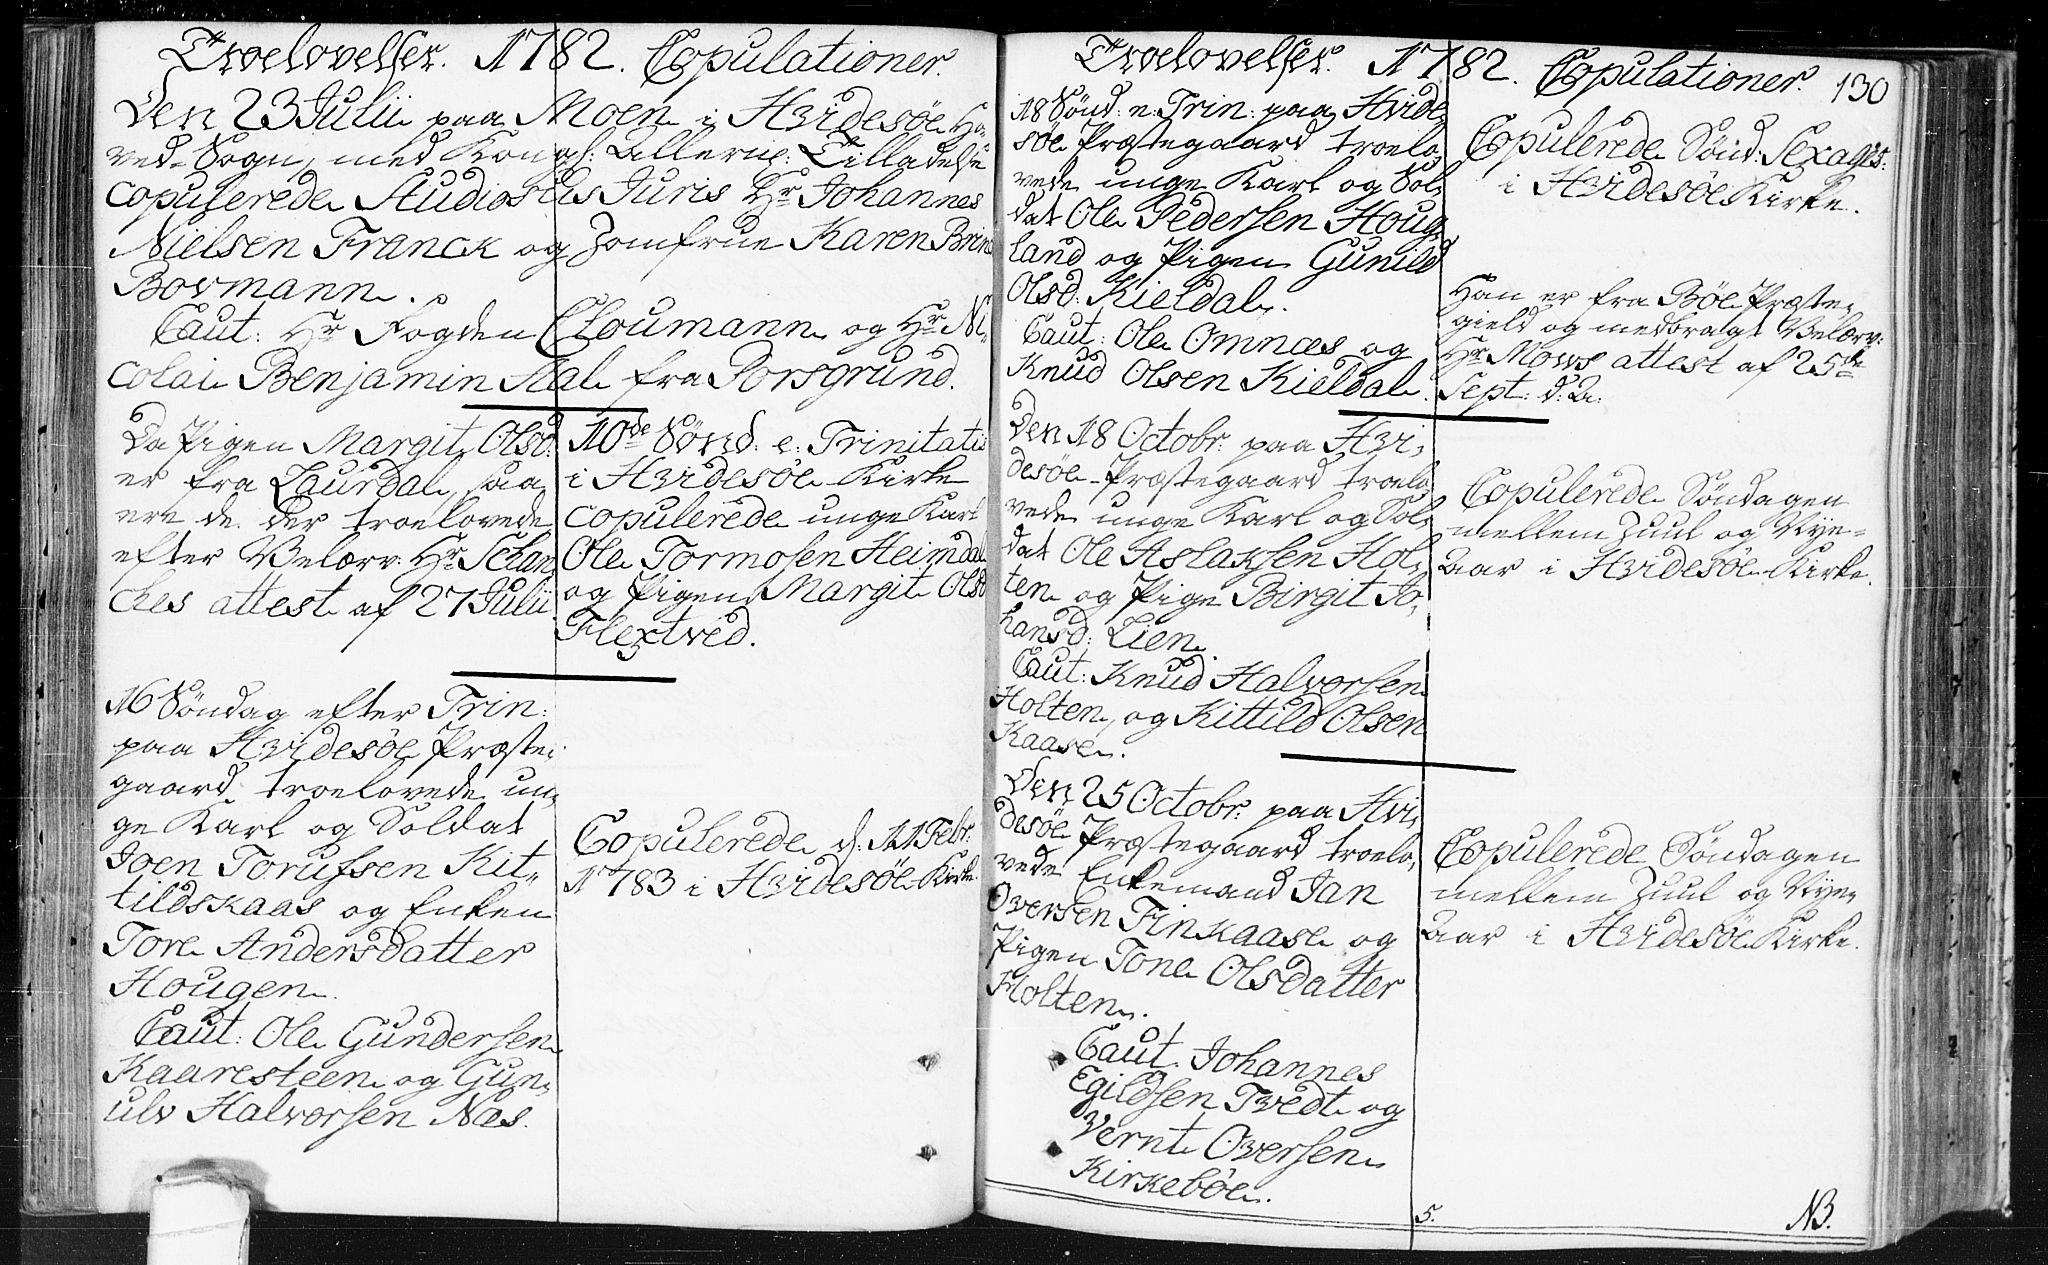 Troelovelser. 1782. Copulationer.
Den 23 Julii paa Moen i Hvidesøe Ho-
ved-Sogn, med Kongl: Allern: Tilladelse
copulerede Studiosus Juris Hr Johannes
Nielsen Franck og Jomfrue Karen Brine
Bormann.
Caut: Hr Fogden Cloumann og Hr Ni-
colai Benjamin Aal fra Porsgrund.
Da Pigen Margit Olsd:
er fra Laurdal, saa
ere de der troelovede
efter Velærv: Hr Schan
ches attest af 27 Julii
10de Sønd: e: Trinitatis
i Hvidesøe Kirke
copulerede unge Karl
Ole Tormosen Heimdal
og Pigen Margit Olsd
Flextved.
16 Søndag efter Trin:
paa Hvidesøe Præste-
gaard troelovede un-
ge Karl og Soldat
Joen Torufsen Kit-
tildskaas og Enken
Tore Andersdatter
Hougen.
Caut: Ole Gundersen
Kaaresteen og Gun-
ulv Halvorsen Næs.
Copulerede d: 11 Febr:
1783 i Hvidesøe Kirke
Troelovelser. 1782. Copulationer.
130
18 Sønd: e: Trin: paa Hvide-
søe Præstegaard troelo-
vede unge Karl og Sol-
dat Ole Pedersen Houg-
land og Pigen Gunild
Olsd: Kieldal.
Caut: Ole Omnæs og
Knud Olsen Kieldal.
Copulerede Sønd: Sexages:
i Hvidesøe Kirke.
Han er fra Bøe Præste-
gield og medbragt Velærv:
Hr Mows attest af 25de
Sept: d: A:
Den 18 Octobr: paa Hvi-
desøe Præstegaard troelo-
vede unge Karl og Sol-
dat Ole Aslaksen Hol-
ten og Pige Birgit Jo-
hansd: Lien.
Caut: Knud Halvorsen
Holten, og Kittild Olsen
Kaase.
Copulerede Søndagen
mellem Juul og Nye-
Aar i Hvidesøe Kirke.
Den 25 Octobr: paa Hvi-
desøe Præstegaard troelo-
vede Enkemand Jan
Oversen Finkaase og
Pigen Tone Olsdatter
Holten.
Caut. Johannes
Egildsen Tvedt og
Vernt Oversen
Kirkebøe.
Copulerede Søndagen
mellem Juul og Nye-
Aar i Hvidesøe Kirke.
5.
NB.